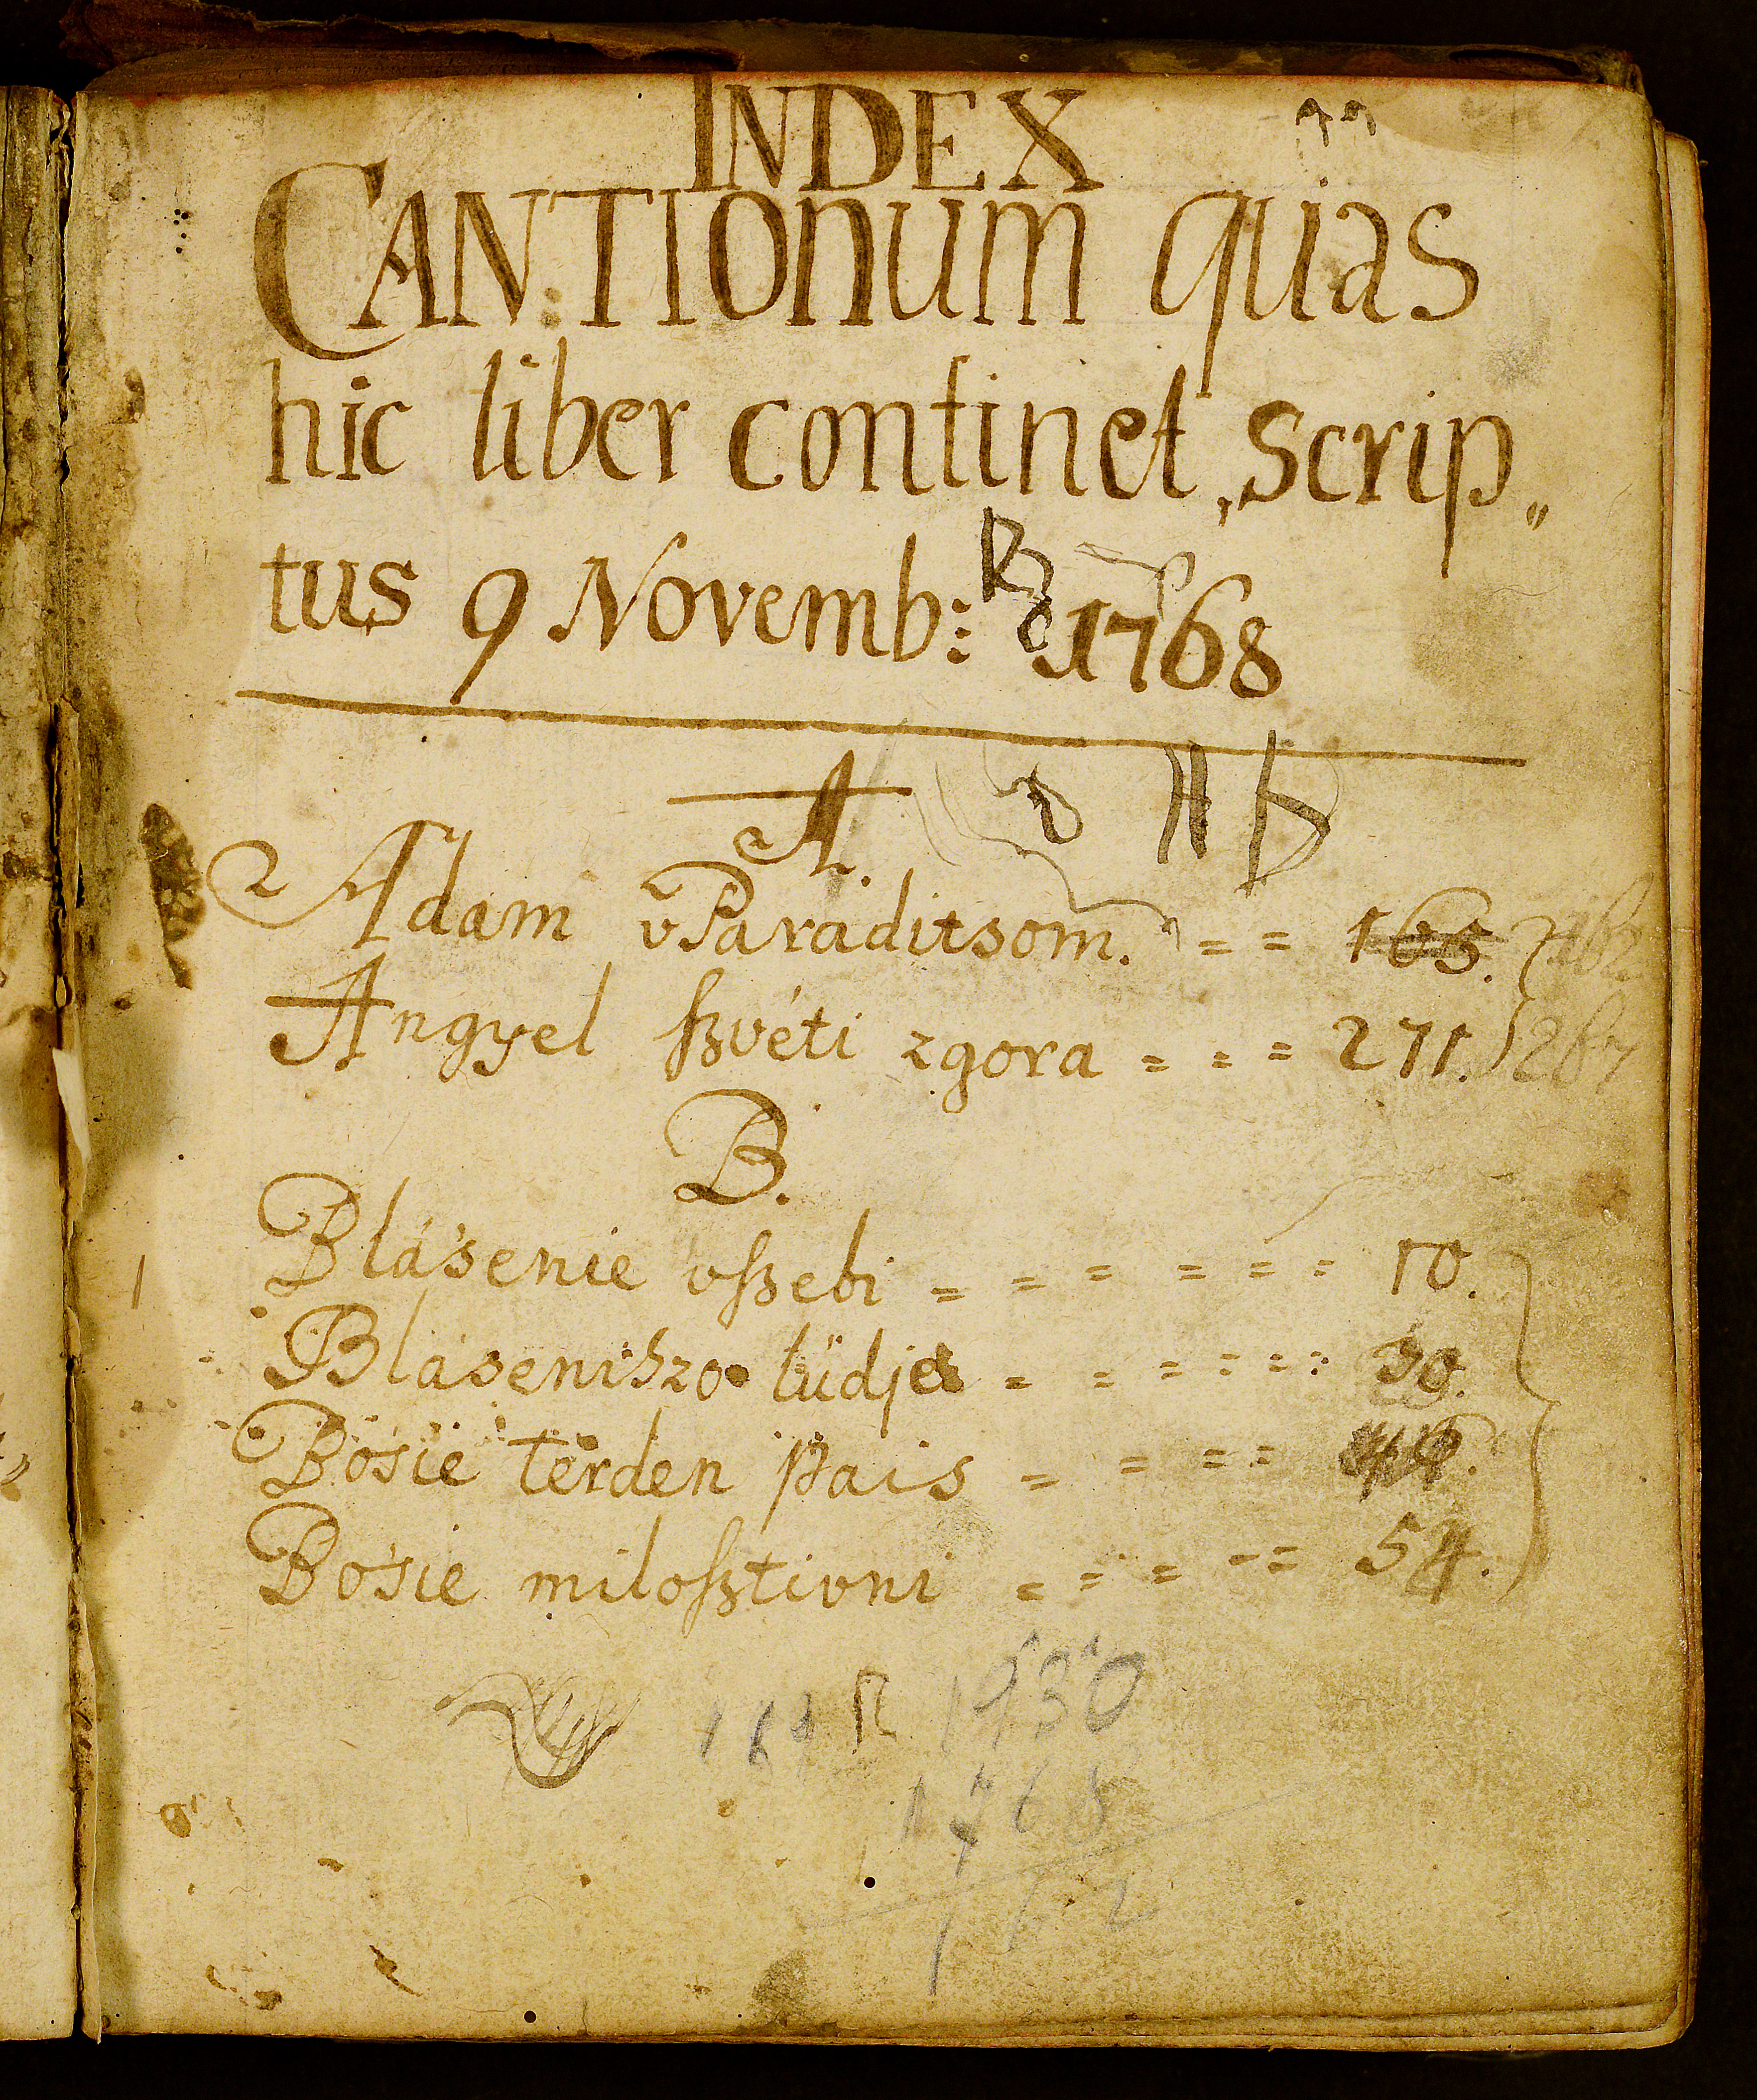 INDEX
CANTIONUM quas
hic liber continet, Scrip„
tus 9 Novemb: 1768
A.
Adam v Paraditsom. = = 165.
Angyel ſzvéti zgora = = = 271. 267
B.
Blásenie vſzebi = = = = = = 10.
Blaseniszo lüdje = = = = = = 30.
Bosie terden pais = = = =
Bosie miloſztivni = = = = = 54.
1930
1768
162